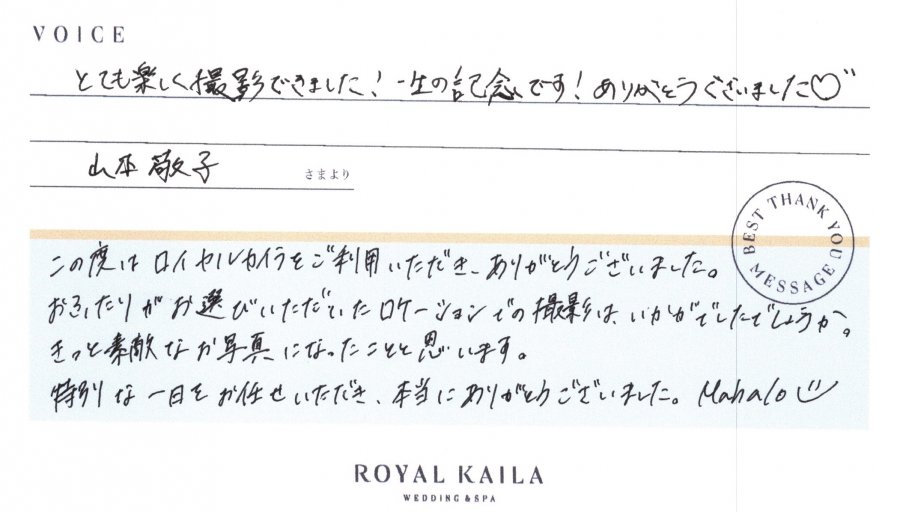 VOICE
とても楽しく撮影できました！一生の記念です！ありがとうございました♡"
山本 敬子 さまより
BEST THANK YOU MESSAGE
この度は ロイヤルカイラをご利用いただき、ありがとうございました。
おふたりがお選びいただいたロケーションでの撮影は、いかがでしたでしょうか。
きっと素敵なお写真になったことと思います。
特別な一日をお任せいただき、本当にありがとうございました。Mahalo
ROYAL KAILA
WEDDING & SPA